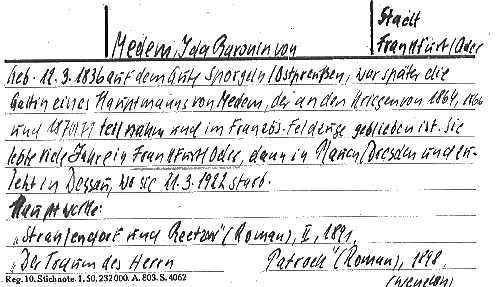 Stadt
Medem, Ida Baronin von Frankfurt/Oder
Geb. 12.3.1836 auf dem Gute Sporgeln/Ostpreußen, war später die
Gattin eines Hauptmanns von Medem, der an den Kriegen von 1864, 1866
und 1870/71 teilnahm und im Französ. Feldzuge geblieben ist. Sie
lebte viele Jahre in Frankfurt/Oder, dann in Plauen/Dresden und zu-
letzt in Dessau, wo sie 21.3.1922 starb.
Hauptwerke:
„Strahlendorf und Reetzow" (Roman), II, 1891
„Der Traum des Herrn Patrock" (Roman), 1898,
Reg. 10. Stichnote. 1. 50. 232 000. A. 803. S. 4062